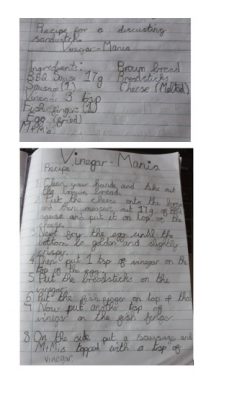 Recipe for a disgusting
sandwich
Vinegar-Mania
Ingredients: Brown bread
BBQ Sauce 17g Breadsticks
Sausage (1) Cheese (Melted)
Vinegar 3 tsp
Fish finger (1)
Egg (fried)
M+Ms
Vinegar-Mania
Recipe
1. Clean your hands and take out
the brown bread.
2. Put the cheese onto the bread
and
sauce and put it on top of the
3. Next fry the egg until the
bottom is golden and slightly
crisper.
4. Then put 1 tsp of vinegar on the
top of the egg.
5. Put the breadsticks on the
vinegar.
6. Put the fish finger on top of that
7. Now put another tsp of
vinegar on the fish finger.
8. On the side put a sausage and
M+Ms topped with a tsp of
vinegar